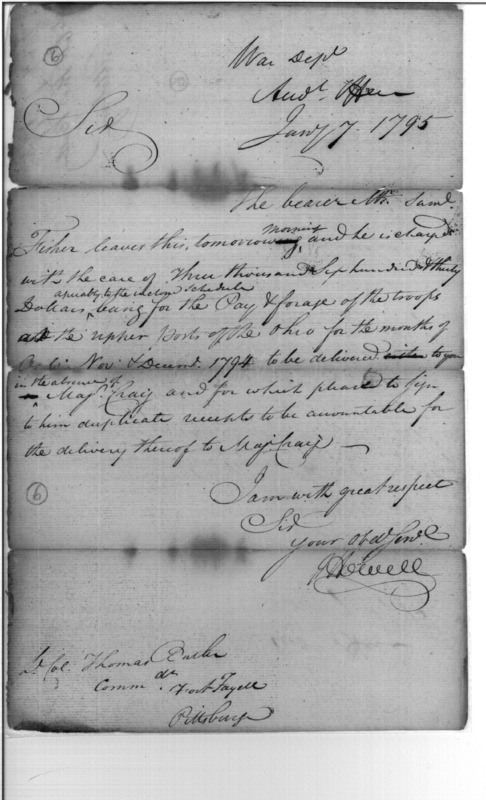 6
War Dept
Acct. Office
Jany 7. 1795
Sir
The bearer Mr. Saml.
Fisher leaves this, tomorrow morning and he is charged
with the care of three thousand hundred & thirty
agreably to the inclosed schedule
Dollars, being for the Pay & forage of the troops
at the upper Posts of the Ohio for the months of
Octr. Nov. & Decemr. 1794 to be delivered to you
in the absence of
Majr. Craig and for which please to sign
to him duplicate receipts to be accountable for
the delivery thereof to Majr. Craig
6
I am with great respect
Sir
your Obed. Servt.
J Howell
Lt Col. Thomas Butler
Commdt. Fort Fayett
Pittsburgh